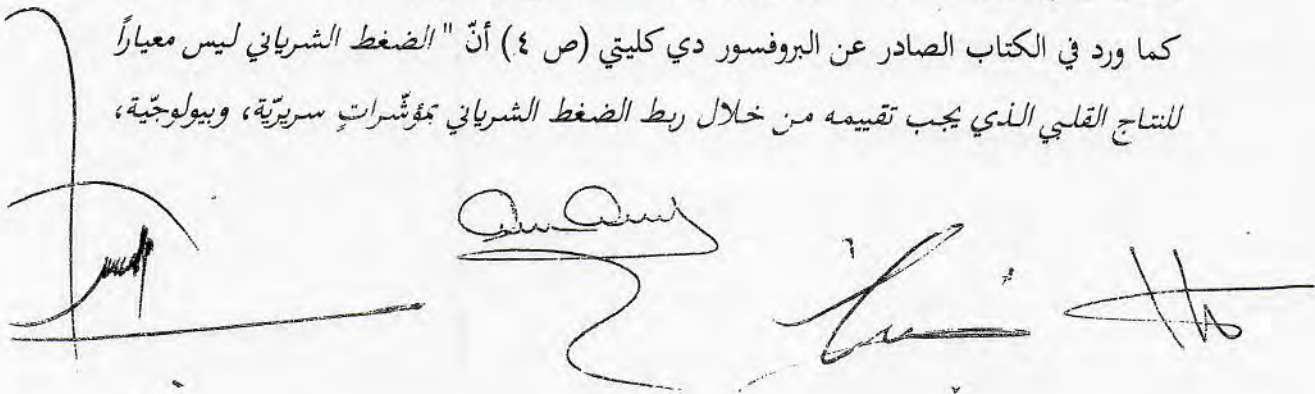 كما ورد في الكتاب الصادر عن البروفسور دي كليتي (ص ٤) أنّ " الضغط الشرياني ليس معياراً
للنتاج القلبي الذي يجب تقييمه من خلال ربط الضغط الشرياني بمؤشّراتٍ سريريّة، وبيولوجّية،